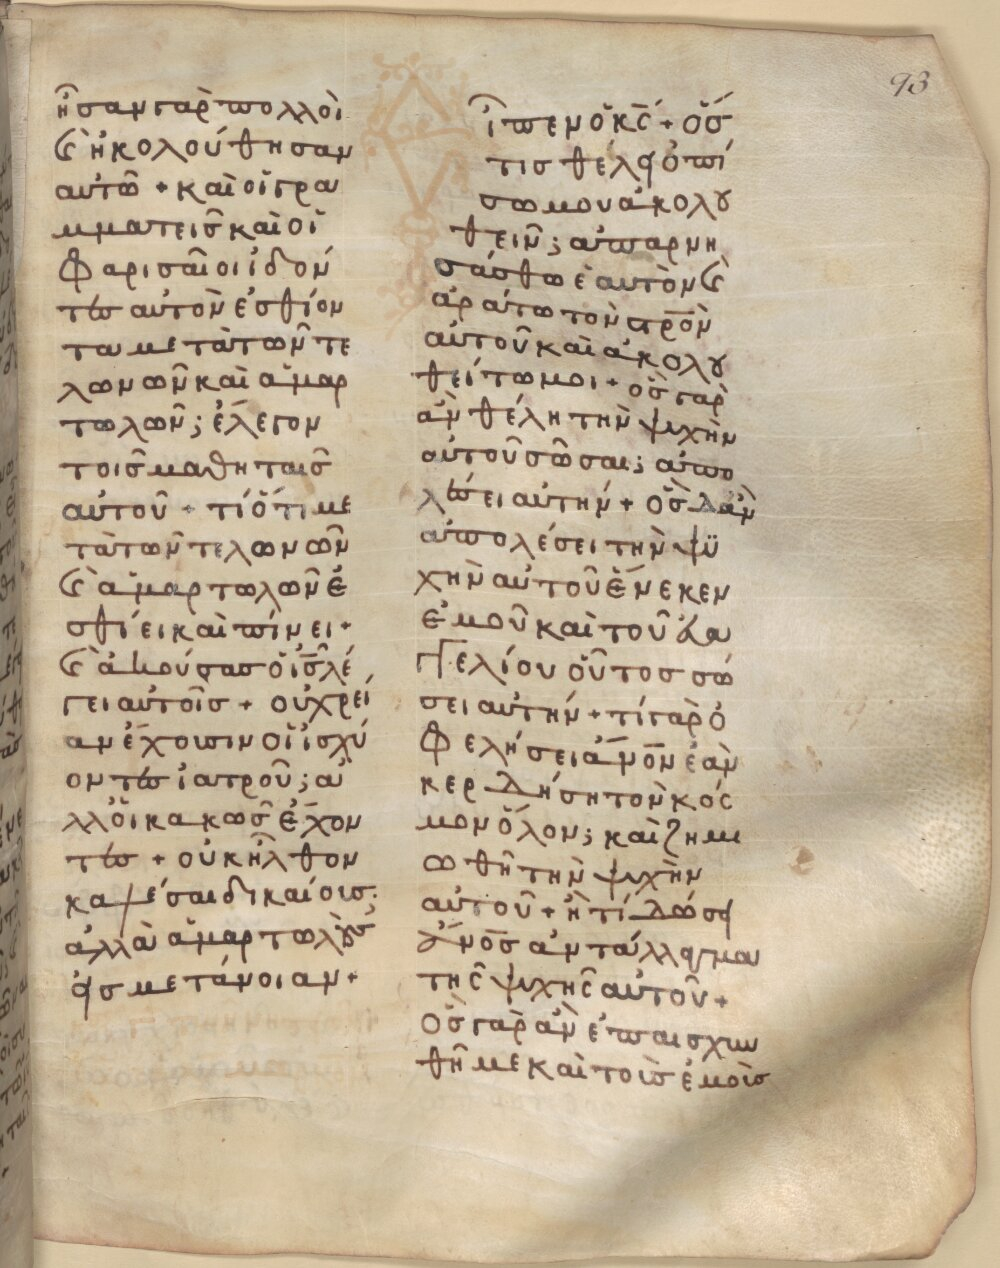 93
ἦσαν γὰρ πολλοὶ
καὶ ἠκολούθησαν
αὐτῶ + καὶ οἱ γρα
μματεῖς καὶ οἱ
Φαρισαῖοι ἰδόν
τες αὐτὸν ἐσθίον
τα μετὰ τῶν τε
λωνῶν καὶ ἁμαρ
τωλῶν; ἔλεγον
τοῖς μαθηταῖς
αὐτοῦ + τί ὅτι με
τὰ τῶν τελωνῶν
καὶ ἁμαρτωλῶν ἐ
σθίει καὶ πίνει +
καὶ ἀκούσας ὁ ι̅ς̅ λέ
γει αὐτοῖς + οὐ χρεί
αν ἔχουσιν οἱ ἰσχύ
οντες ἰατροῦ; ἀ
λλ' οἱ κακῶς ἔχον
τες + οὐκ ἦλθον
καλέσαι δικαίους;
ἀλλὰ ἁμαρτωλοὺς
εἰς μετάνοιαν +
ἶπεν ὁ κ̅ς̅ + ὅσ
τις θέλει ὀπί
σω μου ἀκολου
θεῖν; ἀπαρνη
σάσθω ἑαυτὸν καὶ
ἀράτω τὸν σ̅ρ̅ο̅ν̅
αὐτοῦ καὶ ἀκολου
θείτω μοι + ὃς γὰρ
ἂν θέλη τὴν ψυχὴν
αὐτοῦ σῶσαι; ἀπο
λέσει αὐτήν + ὃς δ' ἂν
ἀπολέσει τὴν ψυ
χὴν αὐτοῦ ἕνεκεν
ἐμοῦ καὶ τοῦ εὐα
γγελίου οὗτος σώ
σει αὐτήν + τί γὰρ ὀ
φελήσει ἄ̅ν̅ο̅ν̅ ἐὰν
κερδήση τὸν κόσ
μον ὅλον; καὶ ζημι
ωθῆ τὴν ψυχὴν
αὐτοῦ + ἢ τί δώσει
ἄ̅ν̅ο̅ς̅ ἀντάλλαγμα
τῆς ψυχῆς αὐτοῦ +
ὃς γὰρ ἂν ἐπαισχυν
θῆ με καὶ τοὺς ἐμοὺς